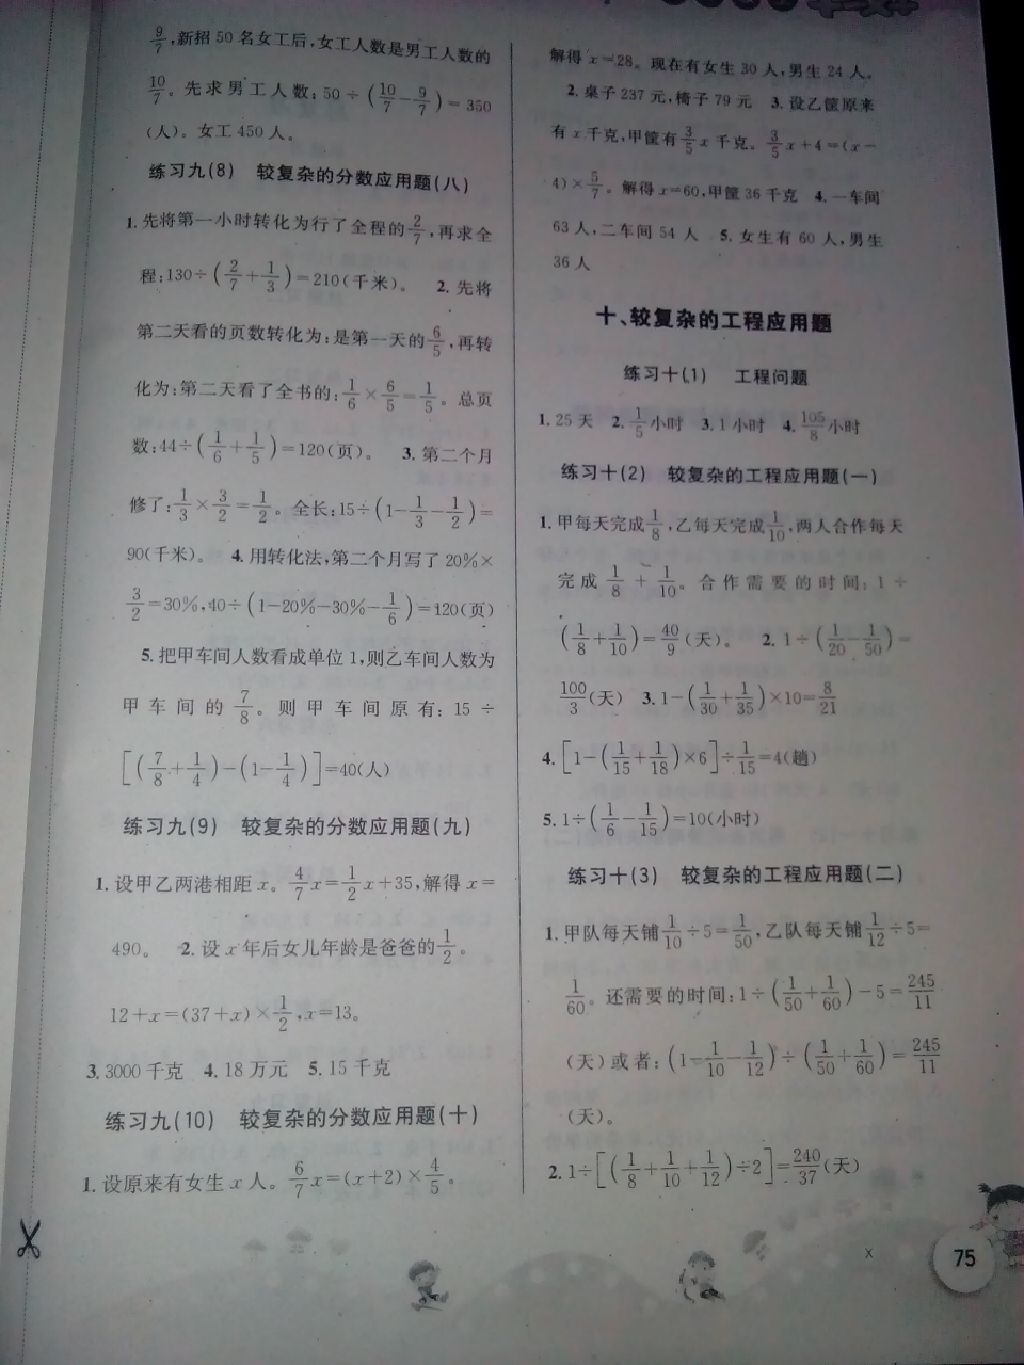 9/7,新招50名女工后,女工人数是男工人数的
10/7。先求男工人数:50÷(10/7-9/7)=350
(人)。女工450人。
练习九(8) 较复杂的分数应用题(八)
1.先将第一小时转化为行了全程的2/7,再求全
程;130÷(2/7+1/3)=210(千米)。 2.先将
第二天看的页数转化为:是第一天的6/5,再转
化为:第二天看了全书的:1/6×6/5=1/5。总页
数:44÷(1/6+1/5)=120(页)。 3.第二个月
修了:1/3×3/2=1/2。全长:15÷(1-1/3-1/2)=
90(千米)。 4.用转化法,第二个月写了20%×
3/2=30%,40÷(1-20%-30%-1/6)=120(页)
5.把甲车间人数看成单位1,则乙车间人数为
甲车间的7/8。则甲车间原有:15÷
[(7/8+1/4)-(1-1/4)]=40(人)
练习九(9) 较复杂的分数应用题(九)
1.设甲乙两港相距x。4/7x=1/2x+35,解得x=
490。 2.设x年后女儿年龄是爸爸的1/2。
12+x=(37+x)×1/2,x=13。
3.3000千克 4.18万元 5.15千克
练习九(10) 较复杂的分数应用题(十)
1.设原来有女生x人。6/7x=(x+2)×4/5。
解得x=28。现在有女生30人,男生24人。
2.桌子237元,椅子79元 3.设乙筐原来
有x千克,甲筐有3/5x千克。3/5x+4=(x-
4)×5/7。解得x=60,甲筐36千克 4.一车间
63人,二车间54人 5.女生有60人,男生
36人
十、较复杂的工程应用题
练习十(1) 工程问题
1.25天 2.1/5小时 3.1小时 4.105/8小时
练习十(2) 较复杂的工程应用题(一)
1.甲每天完成1/8,乙每天完成1/10,两人合作每天
完成1/8+1/10。合作需要的时间:1÷
(1/8+1/10)=40/9(天)。 2.1÷(1/20-1/50)=
100/3(天) 3.1-(1/30+1/35)×10=8/21
4.[1-(1/15+1/18)×6]÷1/15=4(趟)
5.1÷(1/6-1/15)=10(小时)
练习十(3) 较复杂的工程应用题(二)
1.甲队每天铺1/10÷5=1/50,乙队每天铺1/12÷5=
1/60。还需要的时间:1÷(1/50+1/60)-5=245/11
(天)或者:(1-1/10-1/12)÷(1/50+1/60)=245/11
(天)。
2.1÷[(1/8+1/10+1/12)÷2]=240/37(天)
x
75